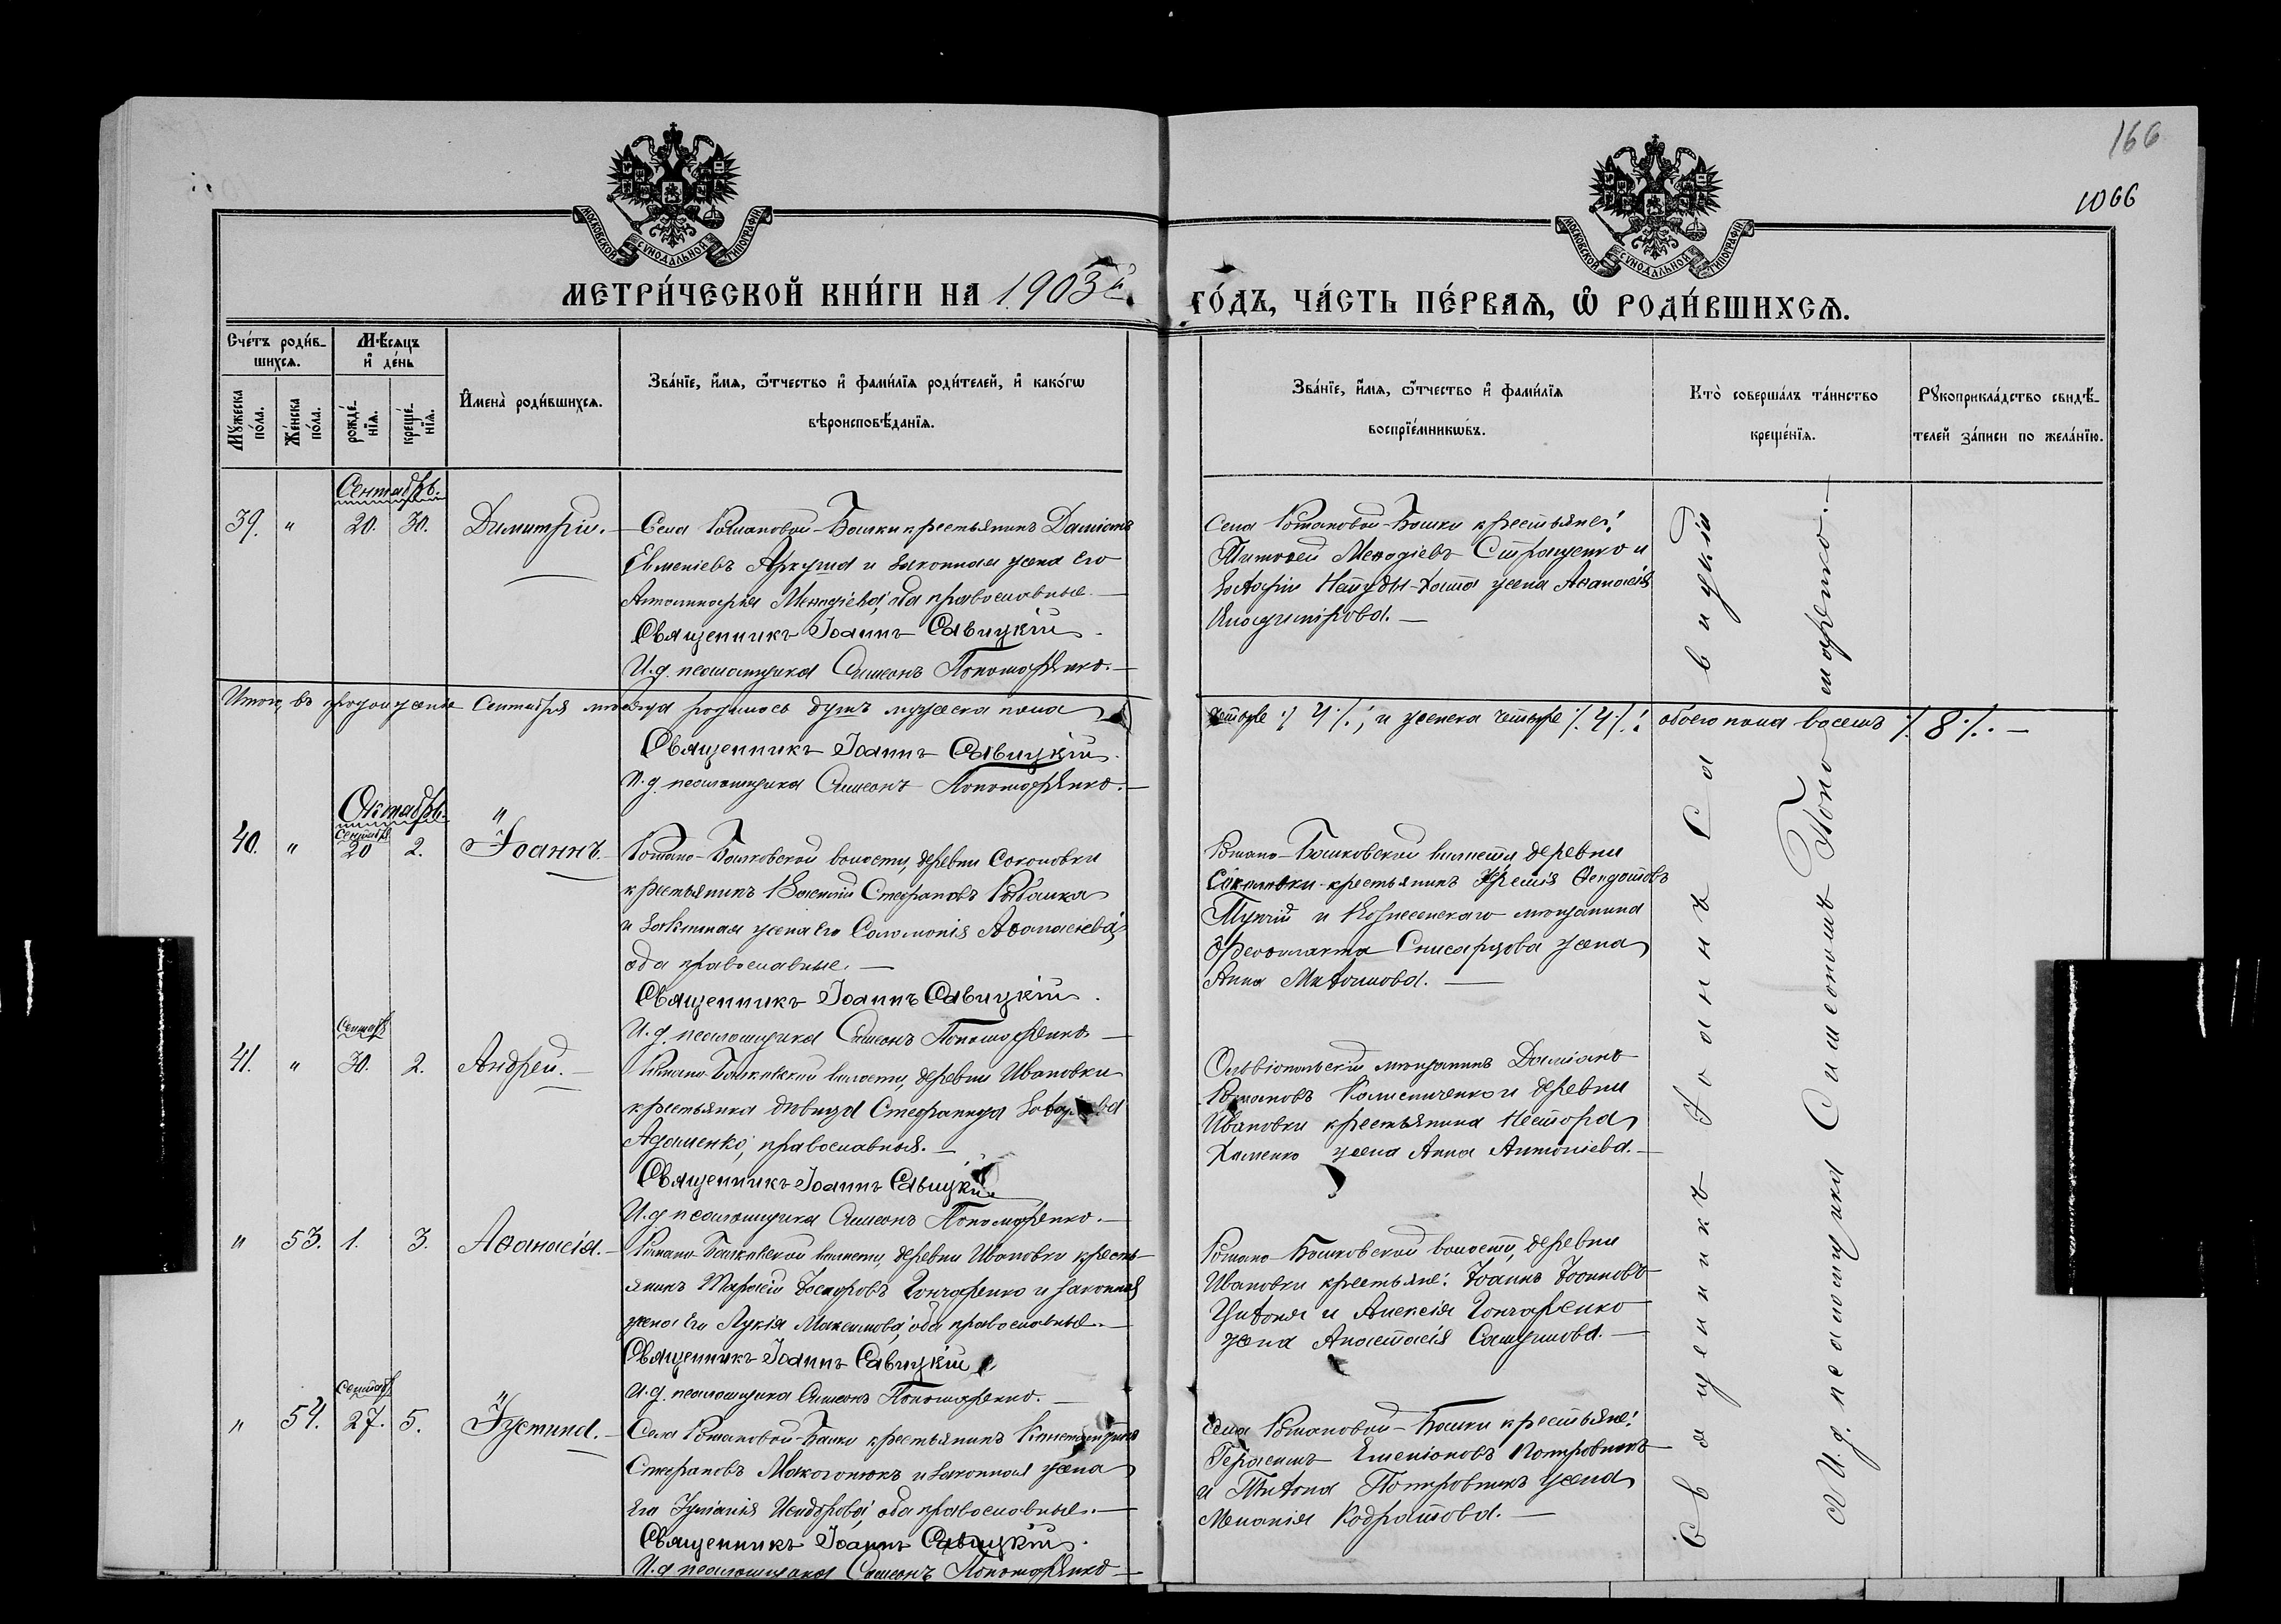 166
1066
МОСКОВСКОЙ СУНОДАЛЬНОЙ ТИПОГРАФІИ
МОСКОВСКОЙ СУНОДАЛЬНОЙ ТИПОГРАФІИ
МЕТРИ́ЧЕСКОЙ КНИ́ГИ НА 1903й
ГО́ДЪ, ЧА́СТЬ ПЕ́РВАѦ, Ѡ҆ РОДИ́ВШИХСѦ.
Сче́тъ роди́в-
шихсѧ.
Мꙋжеска по́ла.
Же́нска по́ла.
Мѣ́сѧцъ
и҆ де́нь
рожде́-
нїѧ.
креще́-
нїѧ.
И҆мена̀ роди́вшихсѧ.
Зва́нїе, и҆́мѧ, ѻ҆́тчество и҆ фами́лїѧ роди́телей, и҆ како́гѡ
вѣроисповѣ́данїѧ.
Зва́нїе, и҆́мѧ, ѻ҆́тчество и҆ фами́лїѧ
воспрїе́мникѡвъ.
Кто̀ соверша́лъ та́инство
креще́нїѧ.
Рꙋкоприкла́дство свидѣ́-
телей за́писи по жела́нїю.
Сентябрь.
39. " 20. 30. Димитрій.
Села Романовой-Балки крестьянинъ Даміанъ
Евменіевъ Аркуша и законная жена его
Аполлинарія Меѳодіева, оба православные.
Священникъ Іоаннъ Савицкій.
И.д. псаломщика Симеонъ Пономаренко.
Села Романовой-Балки крестьяне:
Тимоѳей Меѳодіевъ Стращенко и
жена Аѳанасія
Итого, въ продолженіе Сентября мѣсяца родилось душъ мужеска пола
четыре ./. 4 ./.; и женска четыре ./. 4 ./.; обоего пола восемь ./. 8 ./.
Священникъ Іоаннъ Савицкій.
И.д. псаломщика Симеонъ Пономаренко.
Октябрь.
40. " Сентябр. 20 2. Іоаннъ.
Романо-Балковской волости, деревни Соколовки
крестьянинъ Стефановъ Рыбалка
и законная жена его Соломонія Аѳанасіева,
оба православные.
Священникъ Іоаннъ Савицкій.
И.д. псаломщика Симеонъ Пономаренко
Романо-Балковской волости деревни
Соколовки крестьянинъ
и Вознесенскаго мѣщанина
Ѳеофилакта жена
Анна
41. " Сентяб. 30. 2. Андрей.
Романо-Балковской волости, деревни Ивановки
крестьянка дѣвица Стефанида
Адаменко, православная.
Священникъ Іоаннъ Савицкій
И.д. псаломщика Симеонъ Пономаренко.
Ольвіопольскій мѣщанинъ Даміанъ
Романовъ и деревни
Ивановки крестьянина Нестора
Хаменко жена Анна Антоніева.
" 53. 1. 3. Аѳанасія.
Романо-Балковской волости, деревни Ивановки кресть-
янинъ Тарасій Гончаренко и законная
жена его Лукія Максимова, оба православные.
Священникъ Іоаннъ Савицкій
И.д. псаломщика Симеонъ Пономаренко.
Романо-Балковской волости, деревни
Ивановки крестьяне: Іоаннъ Іоанновъ
и Алексія Гончаренко
жена Анастасія
" 54. Сентяб. 27. 5. Іустина.
Села Романовой-Балки крестьянинъ Константинъ
Стефановъ Макогонюкъ и законная жена
его Іуліанія оба православные.
Священникъ Іоаннъ Савицкій.
И.д. псаломщика Симеонъ Пономаренко
Села Романовой-Балки крестьяне:
Герасимъ
и жена
Меланія
Священникъ Іоаннъ Савицкій
И.д. псаломщика Симеонъ Пономаренко.